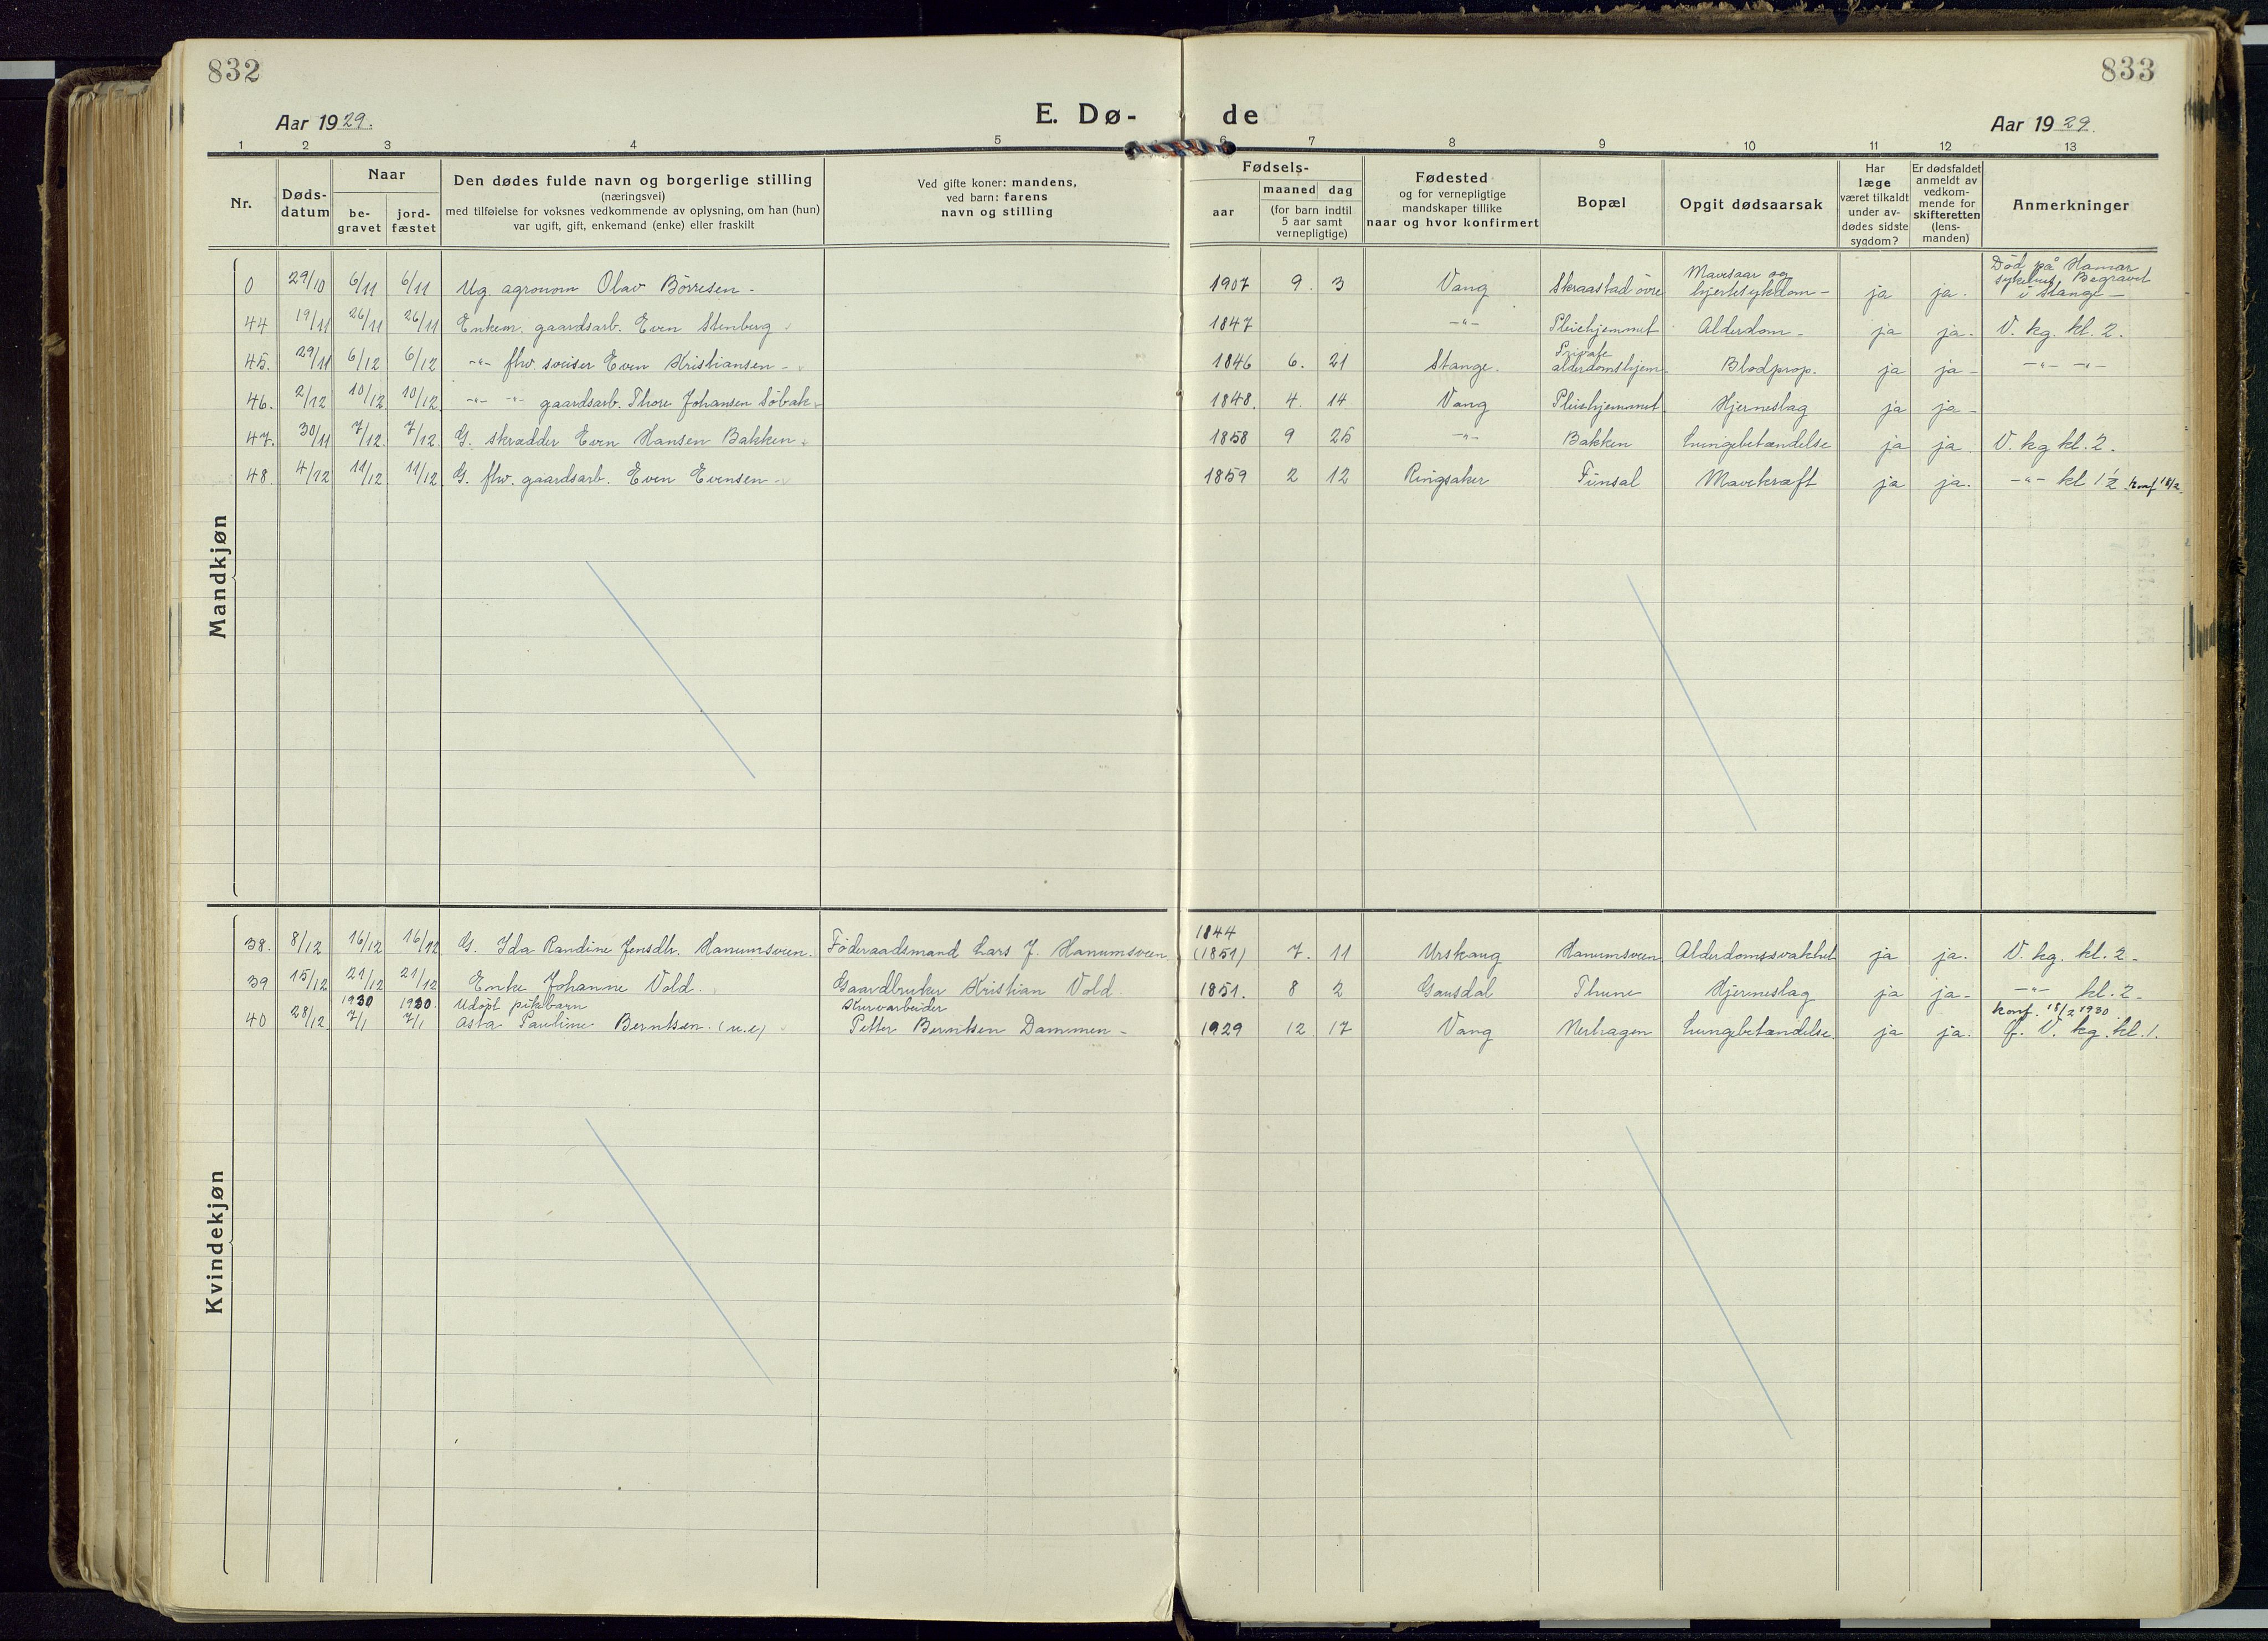 832
833
Aar 1929.
E. Dø-
de
Aar 1929.
1 2 3 4 5 6 7 8 9 10 11 12 13
Nr.
Døds-
datum
Naar
be-
gravet
jord-
fæstet
Den dødes fulde navn og borgerlige stilling
(næringsvei)
med tilføielse for voksnes vedkommende av oplysning, om han (hun)
var ugift, gift, enkemand (enke) eller fraskilt
Ved gifte koner: mandens,
ved barn: farens
navn og stilling
Fødsels-
aar
maaned dag
(for barn indtil
5 aar samt
vernepligtige)
Fødested
og for vernepligtige
mandskaper tillike
naar og hvor konfirmert
Bopæl
Opgit dødsaarsak
Har
læge
været tilkaldt
under av-
dødes sidste
sygdom?
Er dødsfaldet
anmeldt av
vedkom-
mende for
skifteretten
(lens-
manden)
Anmerkninger
Mandkjøn
0 29/10 6/11 6/11 Ug. agronom Olav Börresen - 1907 9. 3 Vang Skraastad övre Mavesaar og hjertesykdom - ja ja. Död på Hamar sykehus Begravet i Stange -
44 19/11 26/11 26/11 Enkem. gaardsarb. Even Stenberg 1847 -"- Pleiehjemmet Alderdom - ja ja. V. kg. kl. 2.
45. 29/11 6/12 6/12 -"- fhv. sveiser Even Kristiansen - 1846 6. 21 Stange. Private alderdomshjem. Blodprop. ja ja - -"- -"-
46. 2/12 10/12 10/12 -"- -"- gaardsarb. Thore Johansen Söbak 1848. 4. 14 Vang Pleiehjemmet Hjerneslag ja ja -
47. 30/11 7/12. 7/12. G. skrædder Even Hansen Bakken 1858 9 25 -"- Bakken Lungebetændelse ja ja. V. kg kl. 2.
48. 4/12 11/12 11/12 G. fhv. gaardsarb. Even Evensen - 1859 2 12 Ringsaker Finsal Mavekræft ja ja. -"- kl 1½ konf 18/2.
Kvindekjøn
38. 8/12 16/12 16/12 G. Ida Randine Jensdtr. Hanumsveen. Föderaadsmand Lars J. Hanumsveen 1844 (1851) 7. 11 Urskaug Hanumsveen Alderdomssvakhet ja ja. V. kg. kl. 2 -
39 15/12 21/12 21/12 Enke Johanne Vold. Gaardbruker Kristian Vold. 1851. 8 2 Gausdal Thune Hjerneslag ja ja - -"- kl. 2 -
1930 1930. Udöpt pikebarn konf. 18/2 1930.
40 28/12 7/1 7/1 Asta Pauline Berntsen. (u.e) Petter Berntsen Dammen - 1929 12. 17 Vang Nerhagen Lungebetændelse. ja ja. f. V. kg. kl. 1.